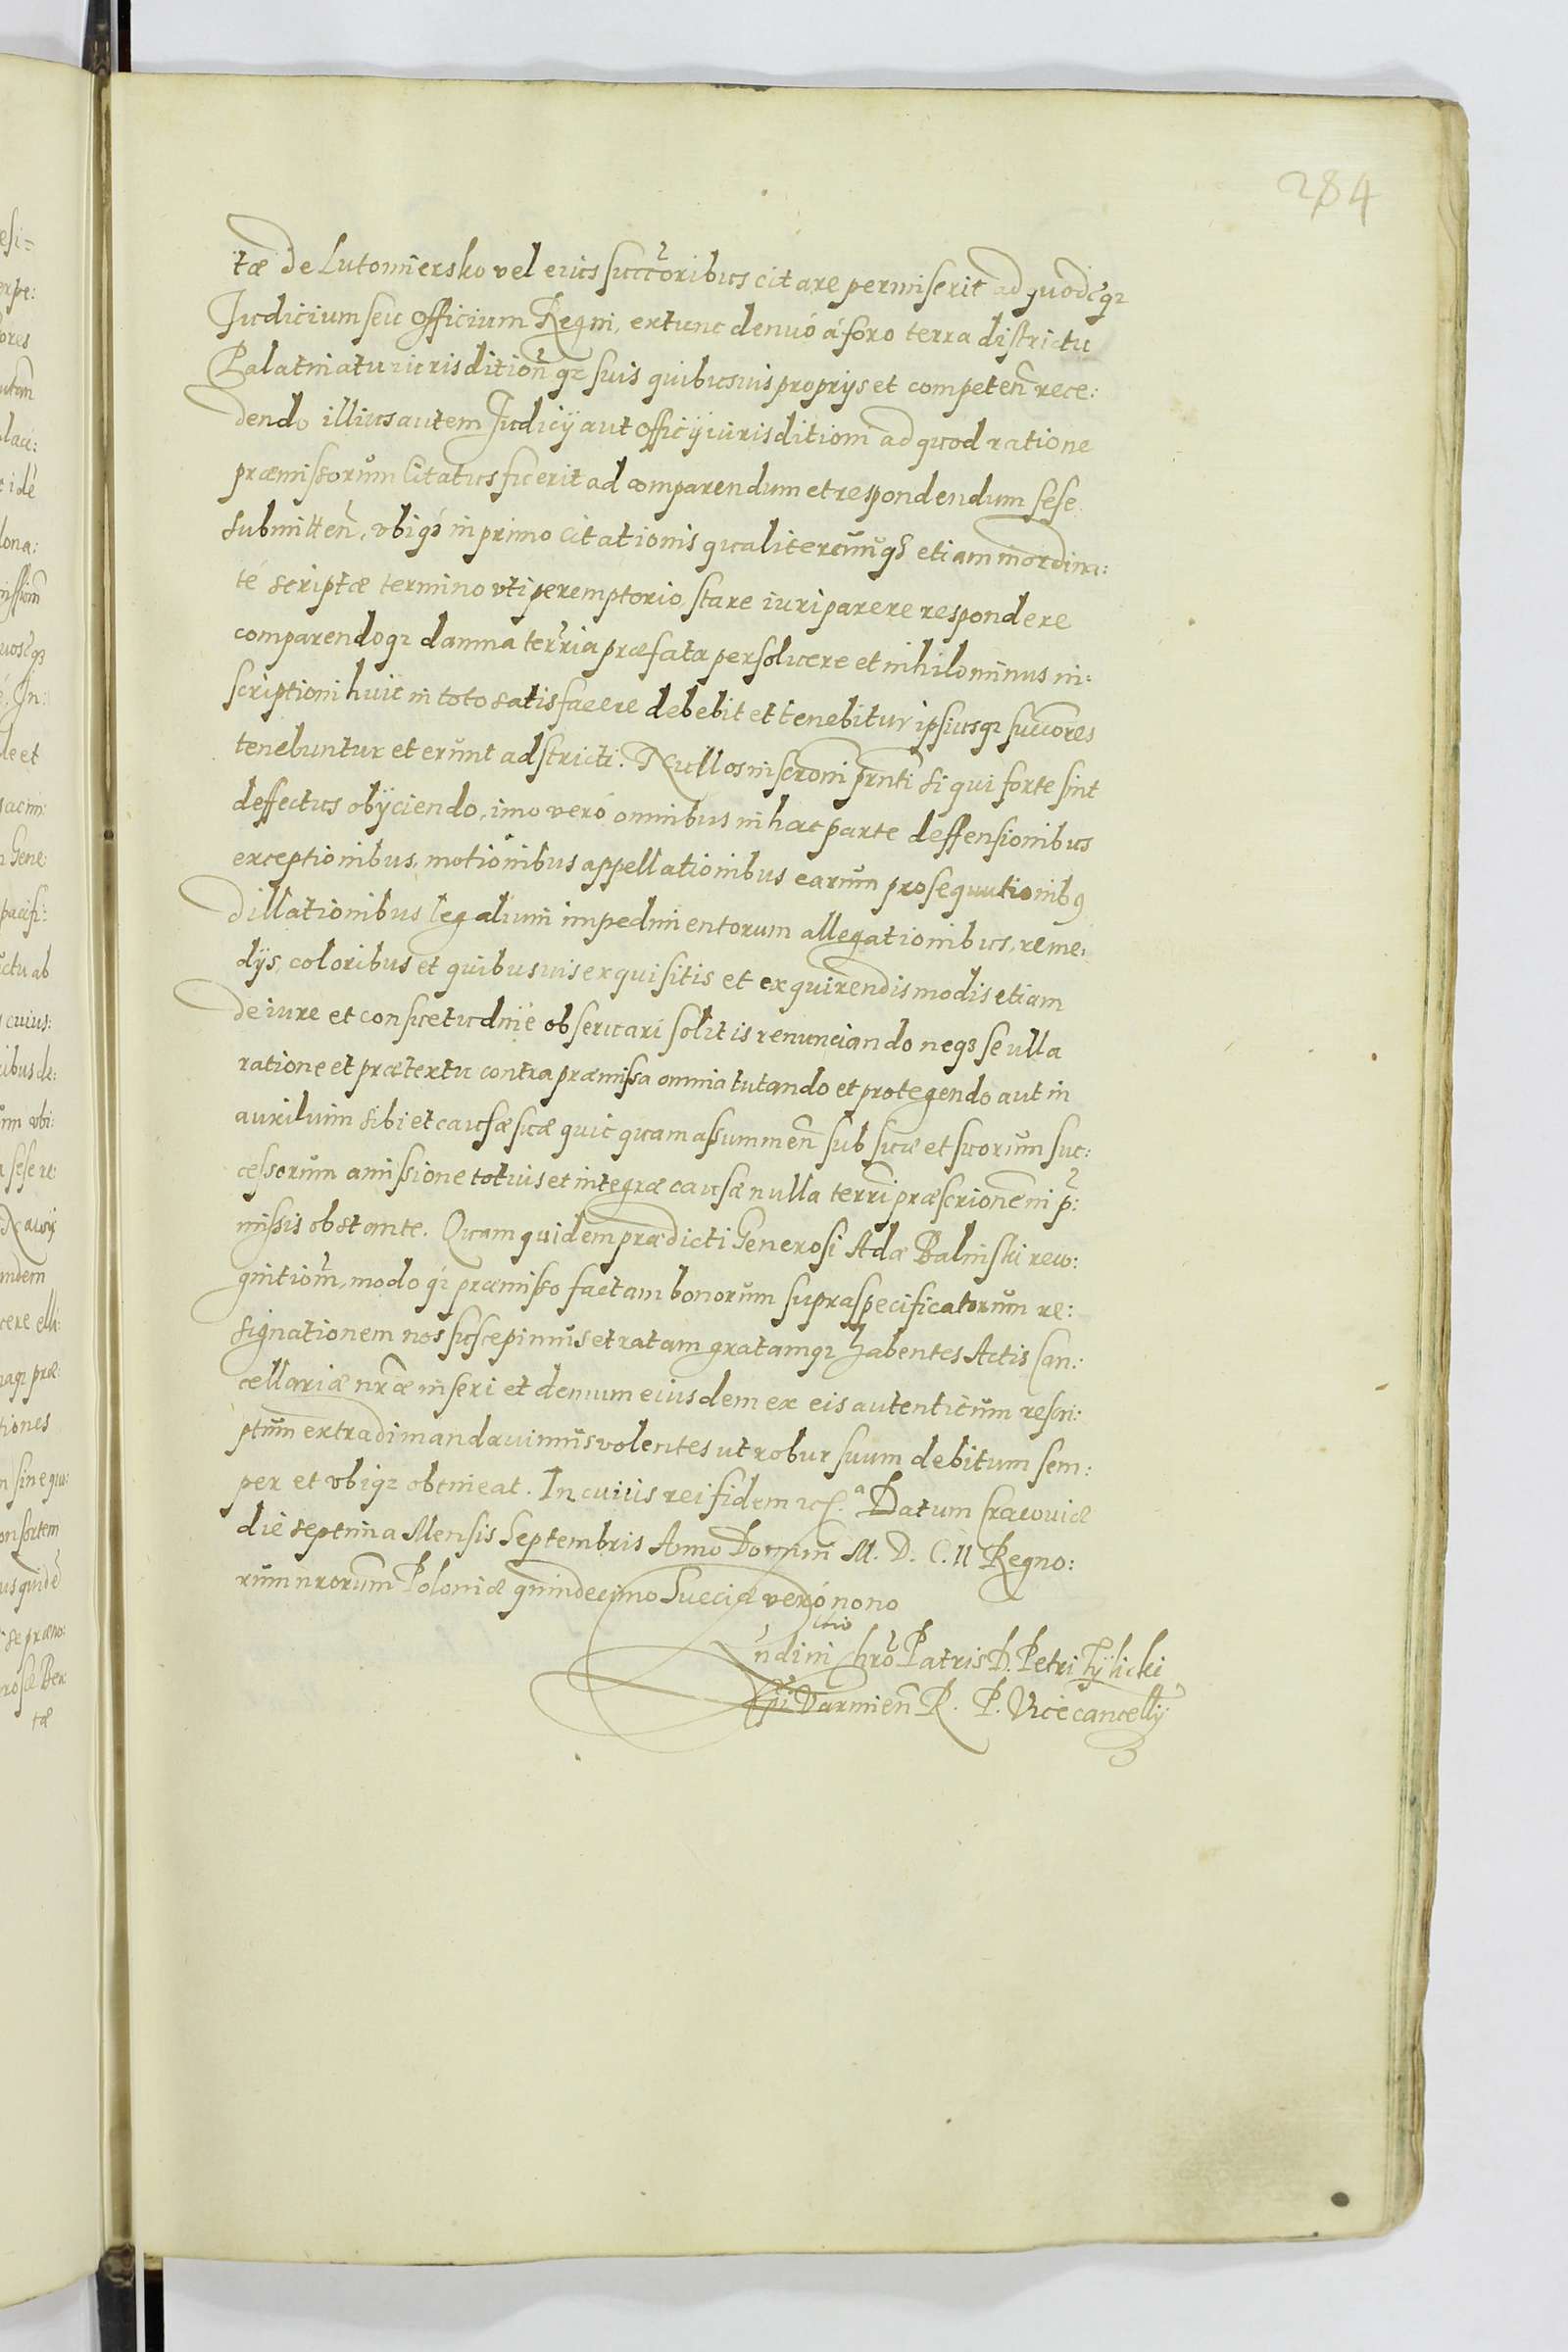 284
tæ de Lutomiersko vel eius succ̃oribus citare permiserit ad quodcũq3
Judicium seu Officium Regni, extunc denuó á foro terra districtu
Palatinatu iurisdition̄ q3 suis quibusuis proprijs et competen̄ rece:
dendo illius autem Judicij aut Officij iurisditioni ad quod ratione
præmissorum Citatus fuerit ad comparendum et respondendum sese
submitten̄, vbiq3 in primo Citationis qualitercunq3 etiam inordina:
té scriptæ termino vti peremptorio stare iuri parere respondere
comparendoq3 damna ter̃ria præfata persoluere et nihilominus in:
scriptioni huic in toto satisfacere debebit et tenebitur ipsiusq3 succores
tenebuntur et erunt adstricti. Nullos inscr̃oni prn̄ti si qui forte sint
deffectus obijciendo, imo veró omnibus in hac parte deffensionibus
exceptionibus, motionibus appellationibus earum prosequutionibꝰ
dillationibus legalium impedimentorum allegationibus, reme:
dijs, coloribus et quibusuis exquisitis et exquirendis modis etiam
de iure et consuetudine obseruari solitis renunciando neq3 se ulla
ratione et prætextu contra præmissa omnia tutando et protegendo aut in
auxilium sibi et causæ suæ quic quam assummen̄ sub suæ et suorum suc:
cessorum amissione totius et integræ causæ nulla terr̃i præscrione in p̃:
missis obstante. Quam quidem prædicti Generosi Adæ Balinski reco:
gnition̄, modo q3 præmisso factam bonorum supraspecificatorum re:
signationem nos suscepimus et ratam gratamq3 habentes Actis Can:
cellariæ nr̃æ inseri et demum eiusdem ex eis autenticum rescri:
ptum extradi mandauimus volentes ut robur suum debitum sem:
per et vbiq3 obtineat. In cuius rei fidem etc. Datum Cracouiæ
die septima Mensis Septembris Anno Domini M. D. C. II Regno:
rum nrorum Poloniæ quindecimo Sueciæ veró nono
ndi in Chrõ Patris D. Petri Tylicki
Ep̃i Varmien̄ R. P. Vicecancellij